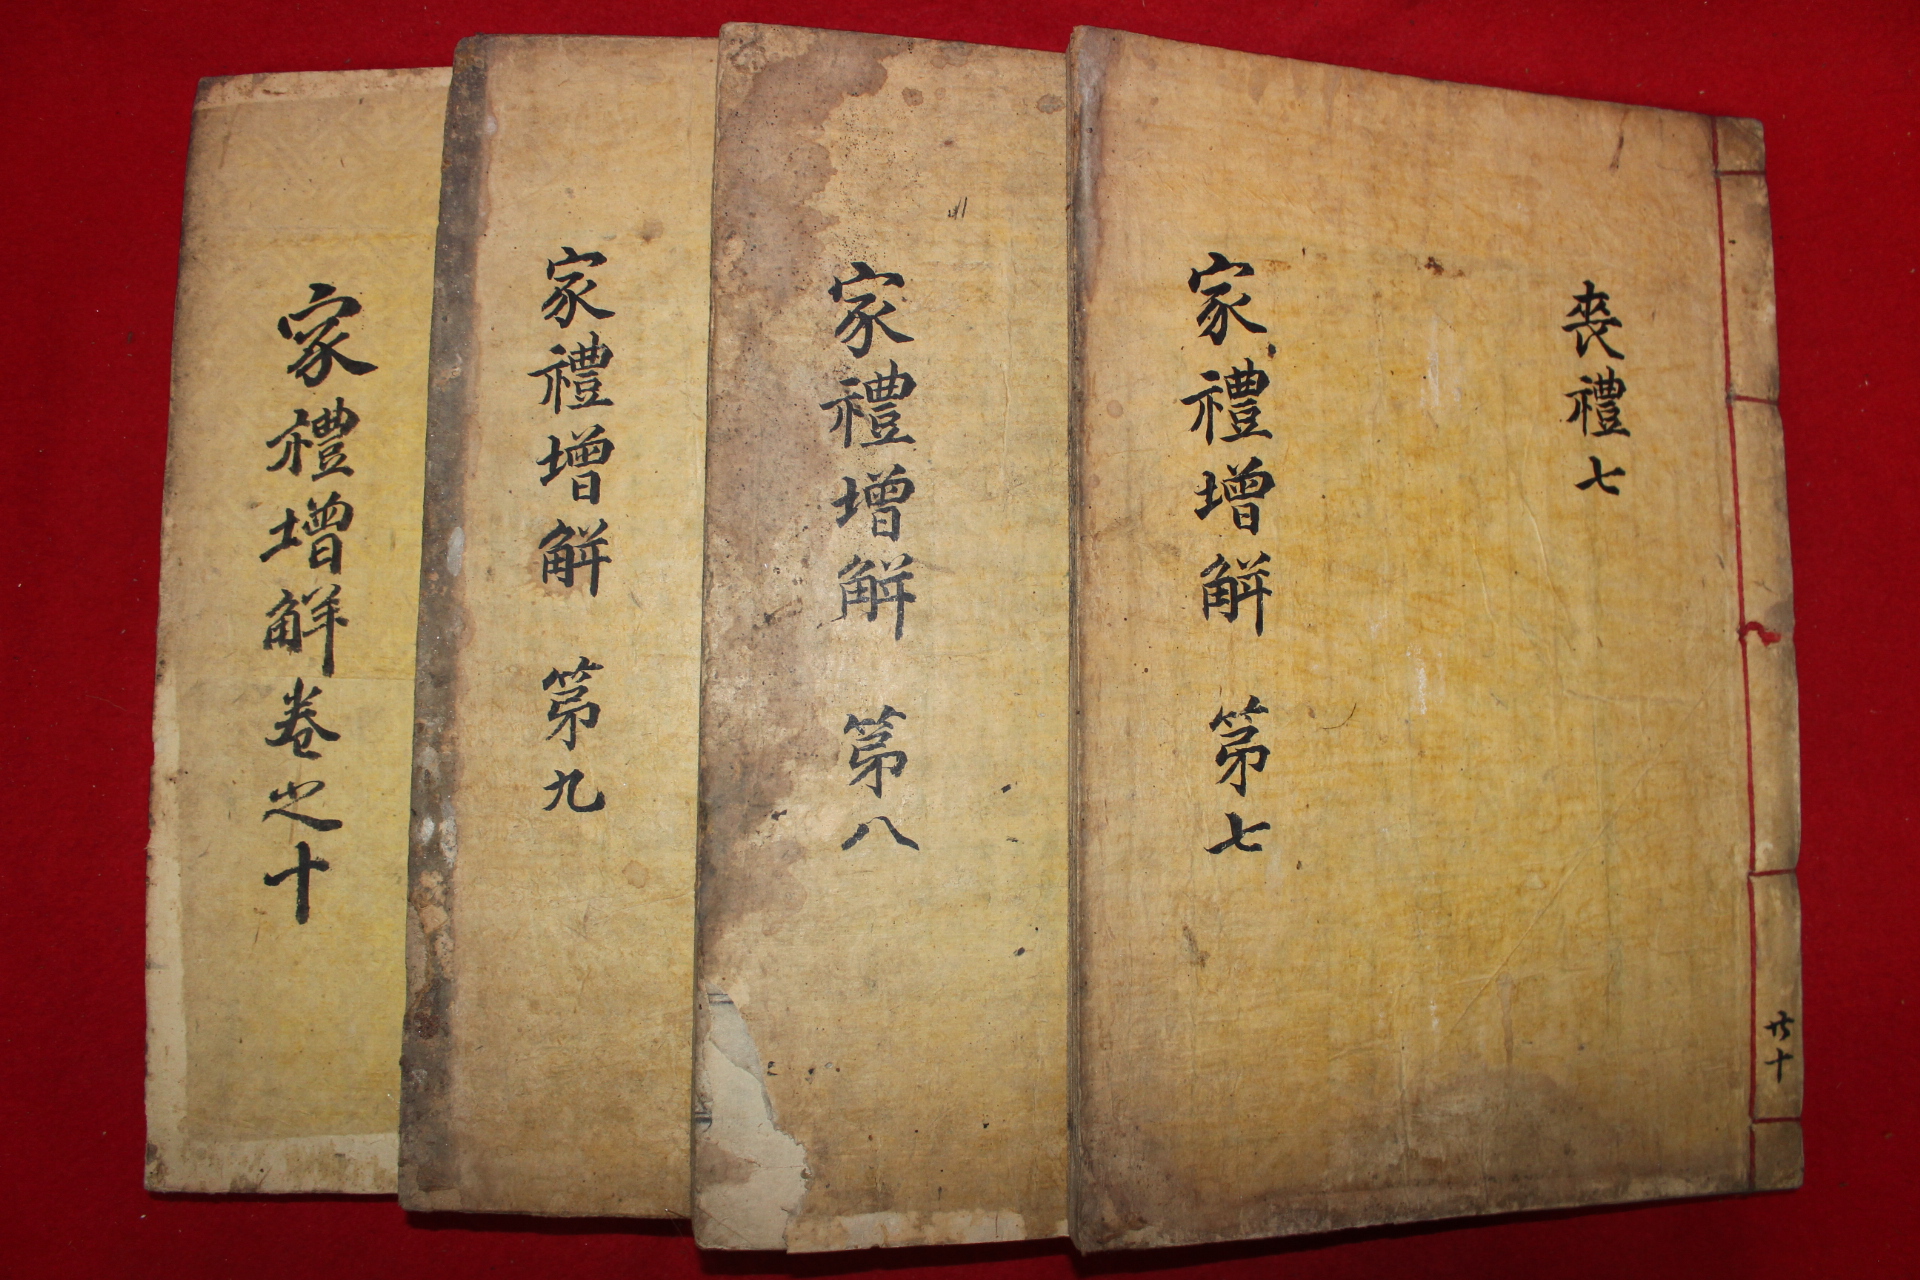 喪禮七
家禮增解 第七
家禮增解 第八
家禮增解 第九
家禮增解卷之十
共十